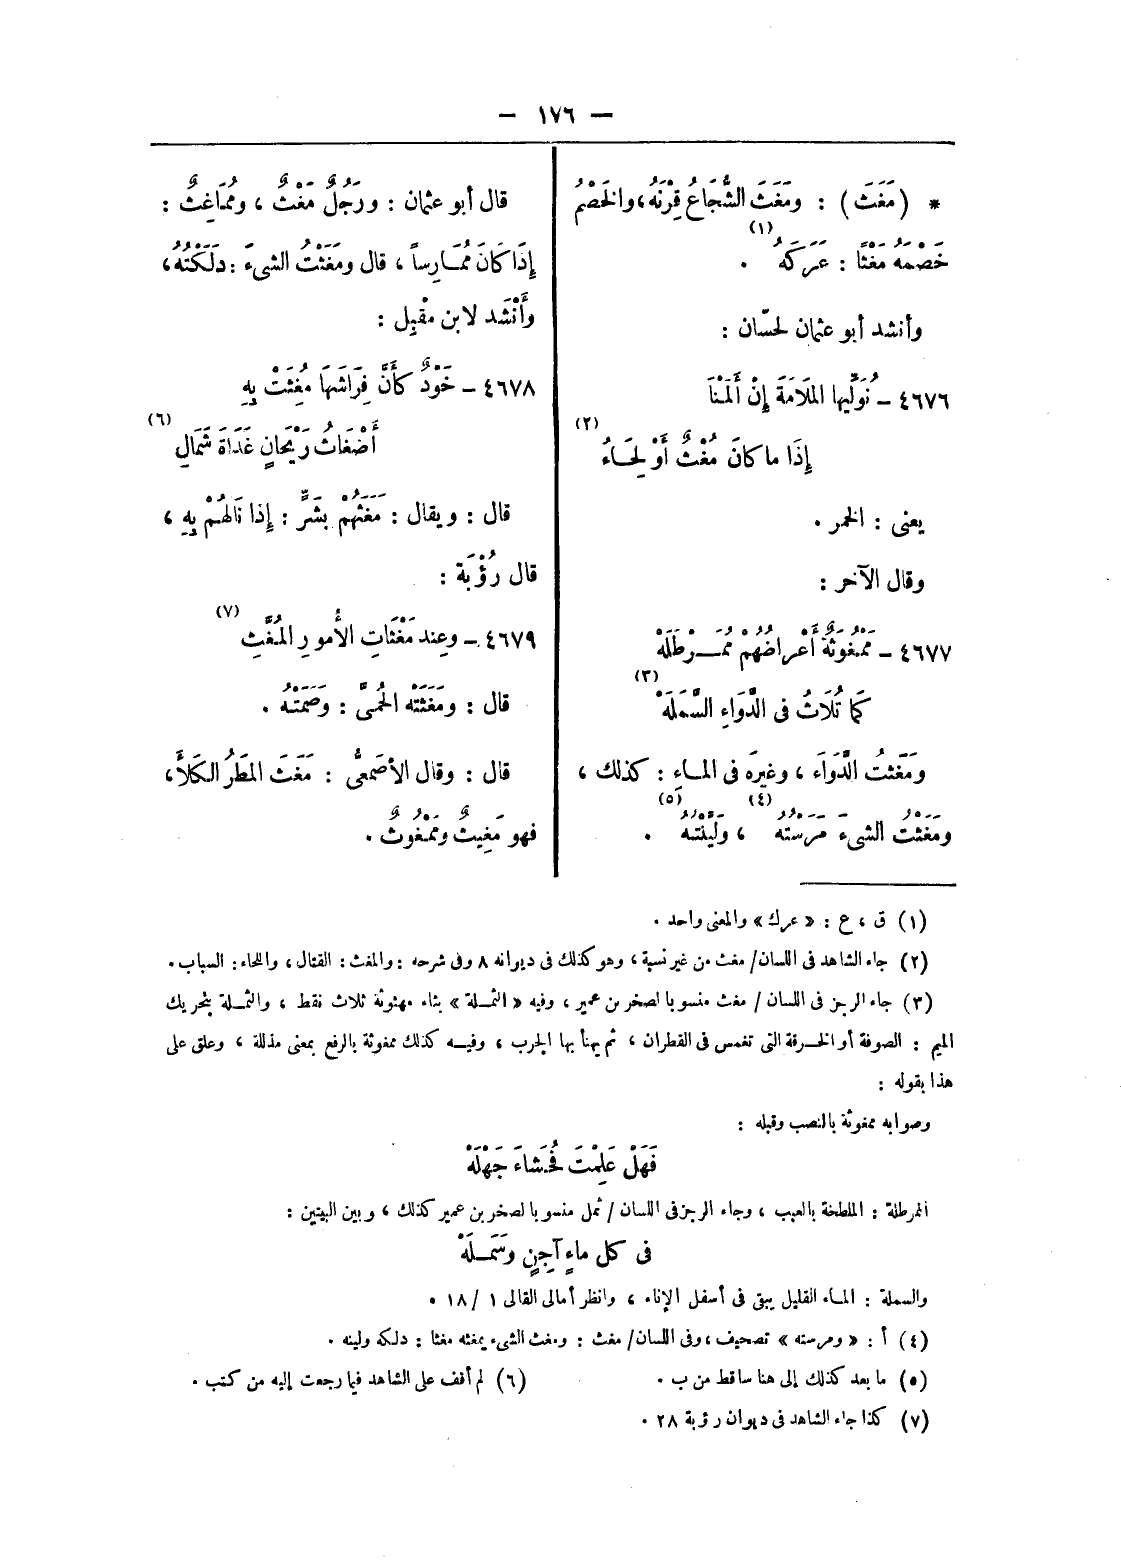 — ١٧٦ —
* (مَغَثَ) : ومَغَثَ الشُّجَاعُ قِرْنَهُ، والخَصْمُ
خَصْمَهُ مَغْثًا : عَرَكَهُ (١) .
وأنشد أبو عثمان لحسّان :
٤٦٧٦ ـ نُوَلِّيها المَلَامَةَ إِنْ أَلَمْنَا
إِذَا ما كانَ مُغْثٌ أَوْ لِحَاءُ (٢)
يعنى : الخمر .
وقال الآخر :
٤٦٧٧ ـ مَمْغُوثَةٌ أَعْراضُهُمْ مُمَـرْطَلَهْ
كَمَا تُلَاثُ فى الدَّوَاءِ السَّمَلَهْ (٣)
ومَغَثْتُ الدَّوَاءَ ، وغيرَه فى المـاءِ : كذلك ،
ومَغَثْتُ الشىءَ مَرَسْتُه (٤) ، ولَيَّنْتُـهُ (٥) .
قال أبو عثمان : ورَجُلٌ مَغْثٌ ، ومُمَاغِثٌ :
إِذَا كَانَ مُمَـارِساً ، قال ومَغَثْتُ الشىءَ : دَلَكْتُه ،
وأَنْشَد لابن مقْبِل :
٤٦٧٨ ـ خَوْدٌ كأَنَّ فِرَاشَهَا مُغِثَتْ بِهِ
أَضْغَاثُ رَيْحَانٍ غَدَاةَ شَمَالِ (٦)
قال : ويقال : مَغَثَهُمْ بِشَرٍّ : إِذا نَالَهُـمْ بِهِ ،
قال رُؤْبَة :
٤٦٧٩ ـ وعِند مَغْثَاتِ الأُمورِ المُغَّثِ (٧)
قال : ومَغَثَتْه الحُمىَّ : وَصَمَتْـهُ .
قال : وقال الأَصْمَعىُّ : مَغَثَ المَطَرُ الـكَلأَ ،
فهو مَغِيثٌ ومَمْغُوثٌ .
(١) ق ، ع : « عرك » والمعنى واحد .
(٢) جاء الشاهد فى اللسان/ مغث من غير نسبة ، وهو كذلك فى ديوانه ٨ وفى شرحه : والمغث : القتال ، واللحاء : السباب .
(٣) جاء الرجز فى اللسان / مغث منسوبا لصخر بن عمير ، وفيه « الثمـلة » بثاء مهثوثة ثلاث نقط ، والثمـلة بتحريك
الميم : الصوفة أو الخـرقة التى تغمس فى القطران ، ثم يهنأ بها الجرب ، وفيـه كذلك ممغوثة بالرفع بمعنى مذللة ، وعلق على
هذا بقوله :
وصوابه ممغوثة بالنصب وقبله :
فَهَلْ عَلِمْتَ فُحَشَاءَ جَهْلَهْ
الممرطلة : الملطخة بالعيب ، وجاء الرجز فى اللسان / ثمل منسوبا لصخر بن عمير كذلك ، وبين البيتين :
فى كل ماءٍ آجِنٍ وسَمَـلَهْ
والسملة : المـاء القليل يبقى فى أسفل الإناء ، وانظر أمالى القالى ١ / ١٨ .
(٤) أ : « ومرسته » تصحيف ، وفى اللسان/ مغث : ومغث الشىء يمغثه مغثا : دلكه ولينه .
(٥) ما بعد كذلك إلى هنا ساقط من ب . (٦) لم أقف على الشاهد فيما رجعت إليه من كتب .
(٧) كذا جاء الشاهد فى ديوان رؤبة ٢٨ .